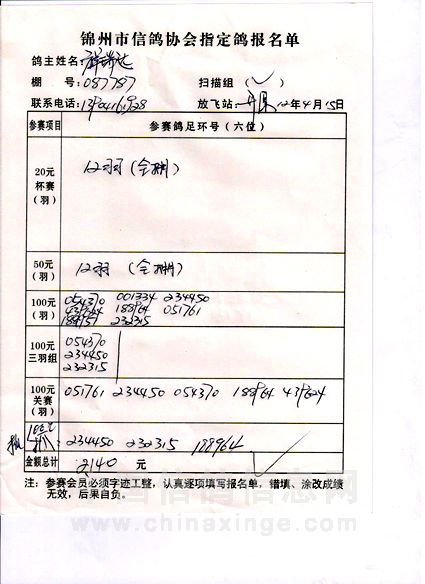 锦州市信鸽协会指定鸽报名单
鸽主姓名:
棚 号:087787 扫描组(✓)
联系电话: 放飞站: 12年4月15日
参赛项目 参赛鸽足环号(六位)
20元
杯赛
(羽)
12羽(全棚)
50元
(羽)
12羽 (全棚)
100元
(羽)
054370 001334 234450
188964 051761
232315
100元
三羽组
054370
234450
232315
100元
关赛
(羽)
051761 234450 054370 188964
234450 232315 188964
金额总计 2140 元
注:参赛会员必须字迹工整,认真逐项填写报名单,错填、涂改成绩
无效,后果自负。
www.chinaxinge.com